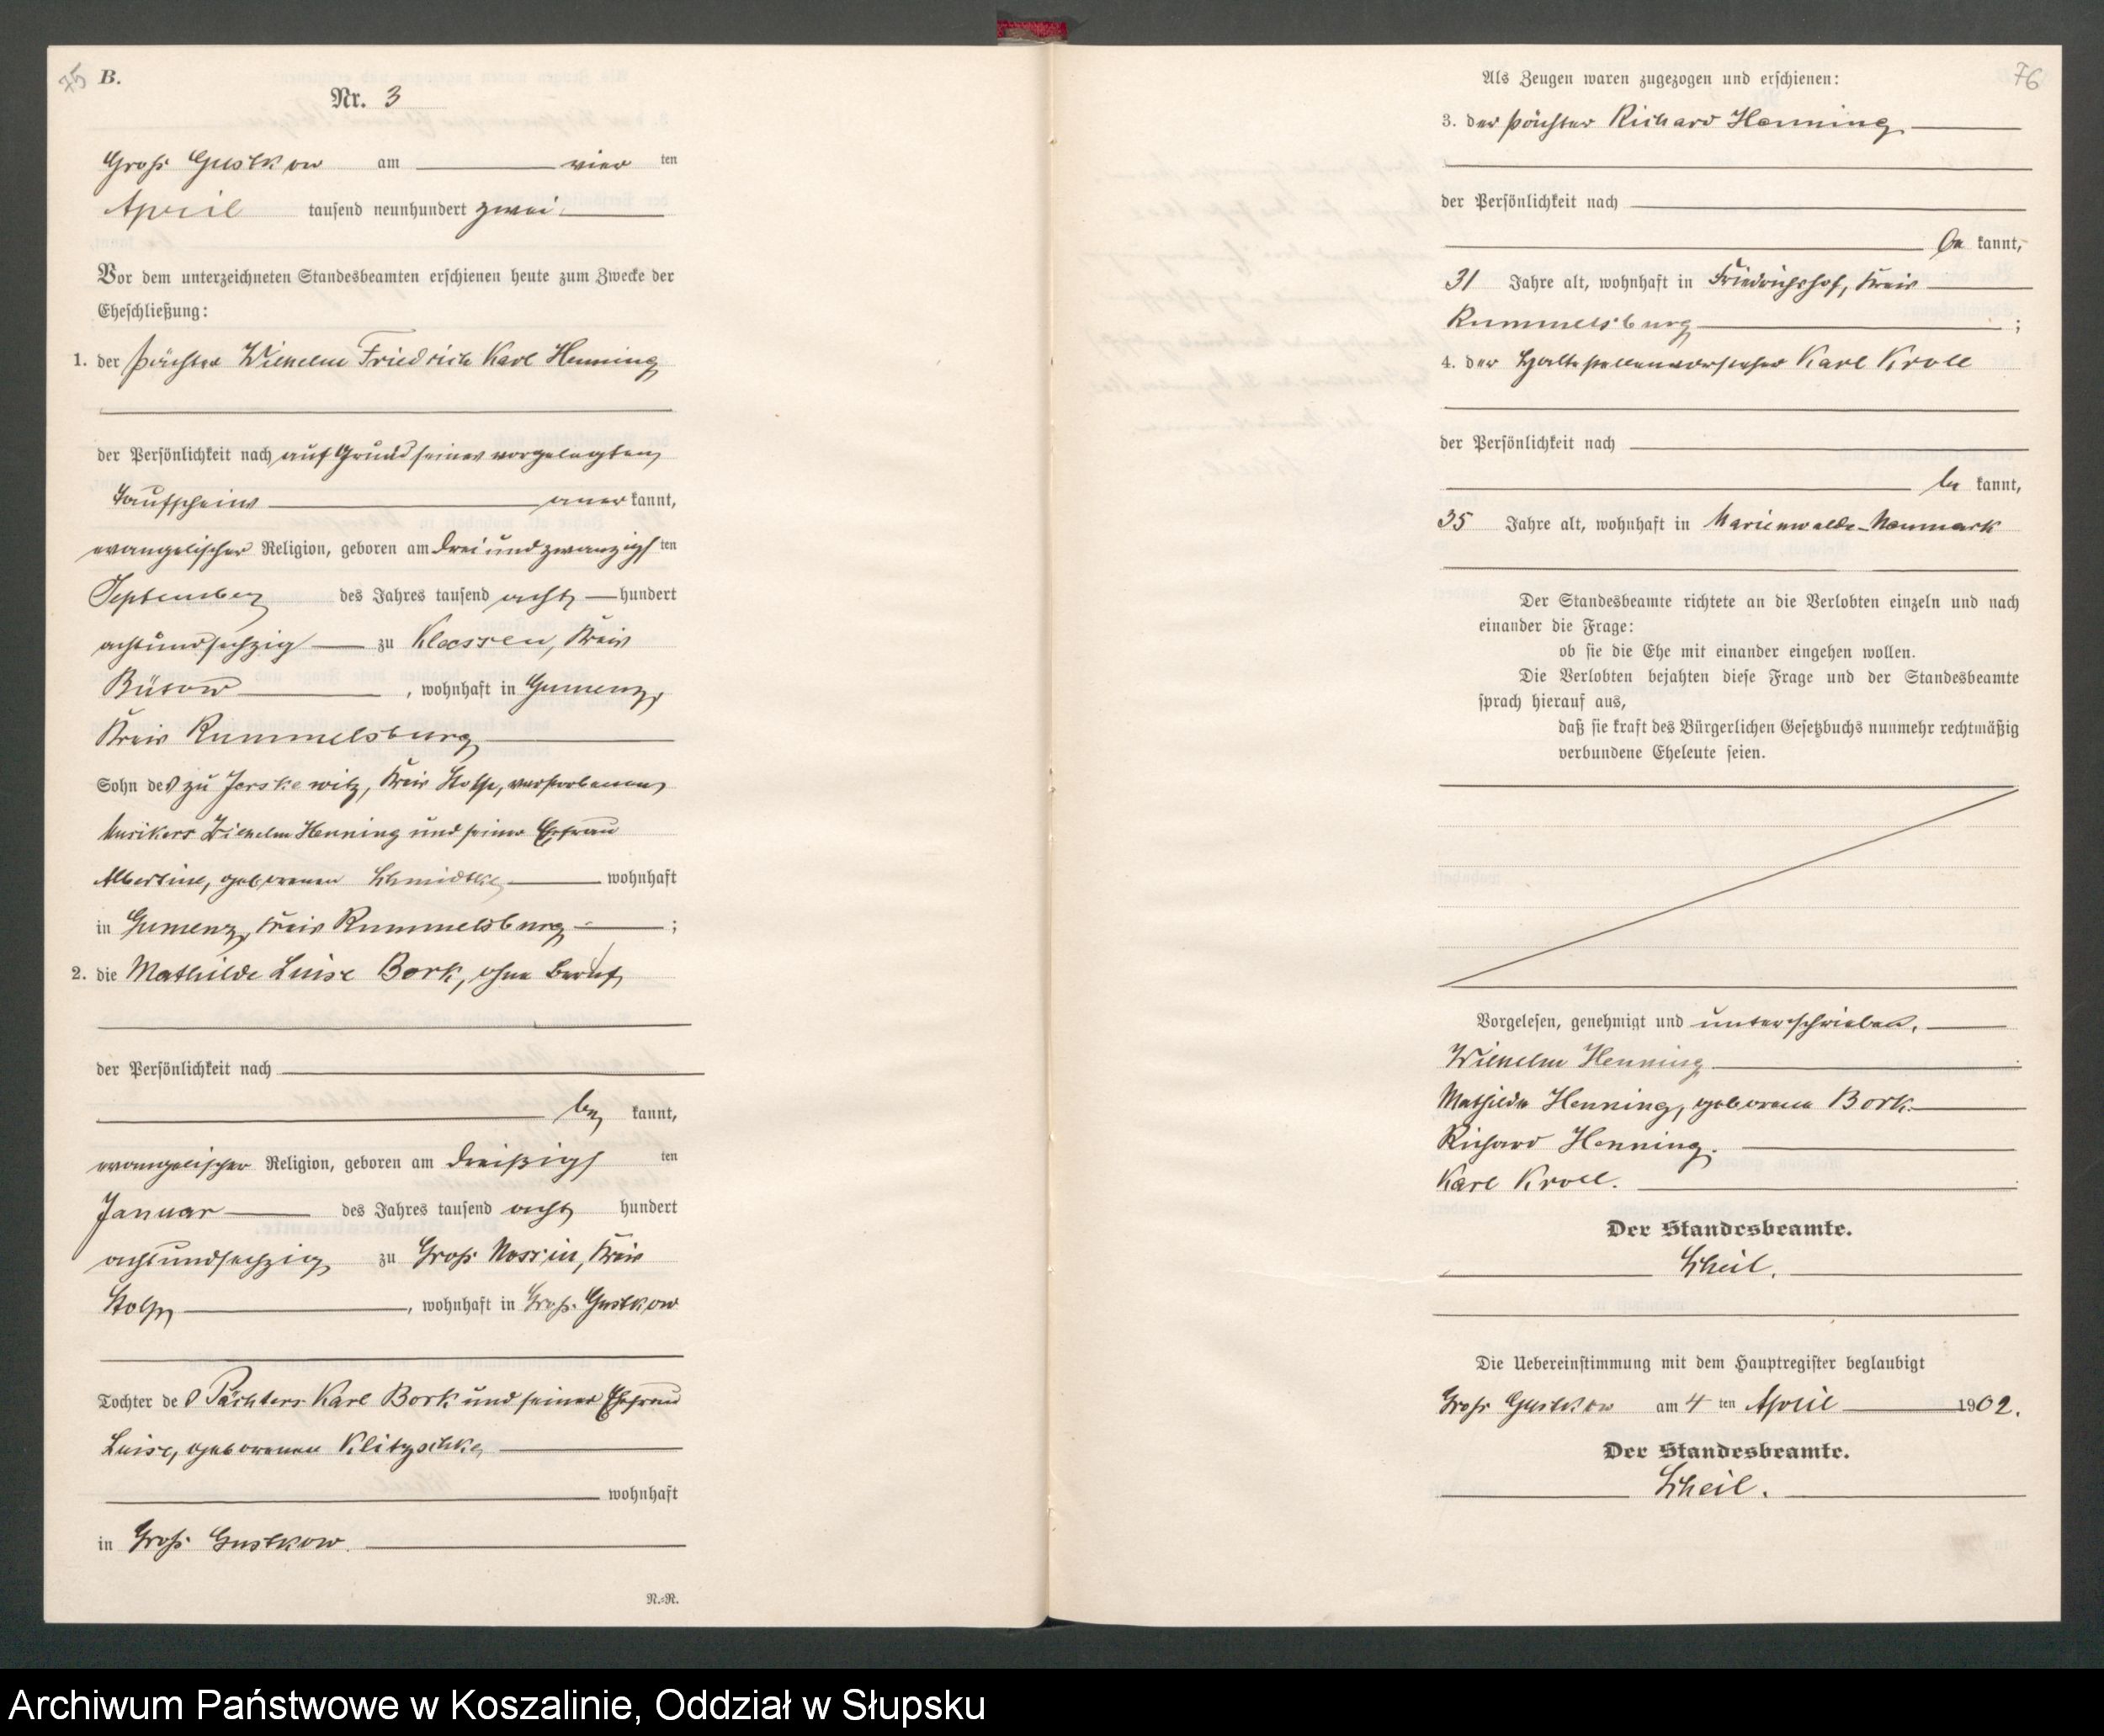 75 B.
Nr. 3
Groß Gustkow am vier ten
April tausend neunhundert zwei
Vor dem unterzeichneten Standesbeamten erschienen heute zum Zwecke der
Eheschließung:
1. der Pächter Wilhelm Friedrich Karl Henning
der Persönlichkeit nach auf Grund seines vorgelegten
Taufscheins aner kannt,
evangelischer Religion, geboren am dreiundzwanzigs ten
September des Jahres tausend acht hundert
achtundsechzig zu Klossen, Kreis
Bütow , wohnhaft in Gumenz,
Kreis Rummelsburg
Sohn des zu Jerskewitz, Kreis Stolp, verstorbenen
Musikers Wilhelm Henning und seiner Ehefrau
Albertine, geborenen Schmidtke wohnhaft
in Gumenz, Kreis Rummelsburg ;
2. die Mathilde Luise Bork, ohne Beruf,
der Persönlichkeit nach
be kannt,
evangelischer Religion, geboren am dreißigs ten
Januar des Jahres tausend acht hundert
achtundsechzig zu Groß Nossin, Kreis
Stolp , wohnhaft in Groß Gustkow
Tochter des Pächters Karl Bork und seiner Ehefrau
Luise, geborenen Klitzschke
wohnhaft
in Groß Gustkow.
N.-R.
76
Als Zeugen waren zugezogen und erschienen:
3. der Pächter Richard Henning
der Persönlichkeit nach
be kannt,
31 Jahre alt, wohnhaft in Friedrichshof, Kreis
Rummelsburg ;
4. der Haltestellenvorsteher Karl Kroll
der Persönlichkeit nach
be kannt,
35 Jahre alt, wohnhaft in Marienwalde-Neumark
Der Standesbeamte richtete an die Verlobten einzeln und nach
einander die Frage:
ob sie die Ehe mit einander eingehen wollen.
Die Verlobten bejahten diese Frage und der Standesbeamte
sprach hierauf aus,
daß sie kraft des Bürgerlichen Gesetzbuchs nunmehr rechtmäßig
verbundene Eheleute seien.
Vorgelesen, genehmigt und unterschrieben.
Wilhelm Henning
Mathilde Henning, geborene Bork.
Richard Henning.
Karl Kroll.
Der Standesbeamte.
Scheil.
Die Uebereinstimmung mit dem Hauptregister beglaubigt
Groß Gustkow am 4 ten April 1902.
Der Standesbeamte.
Scheil.
Archiwum Państwowe w Koszalinie, Oddział w Słupsku